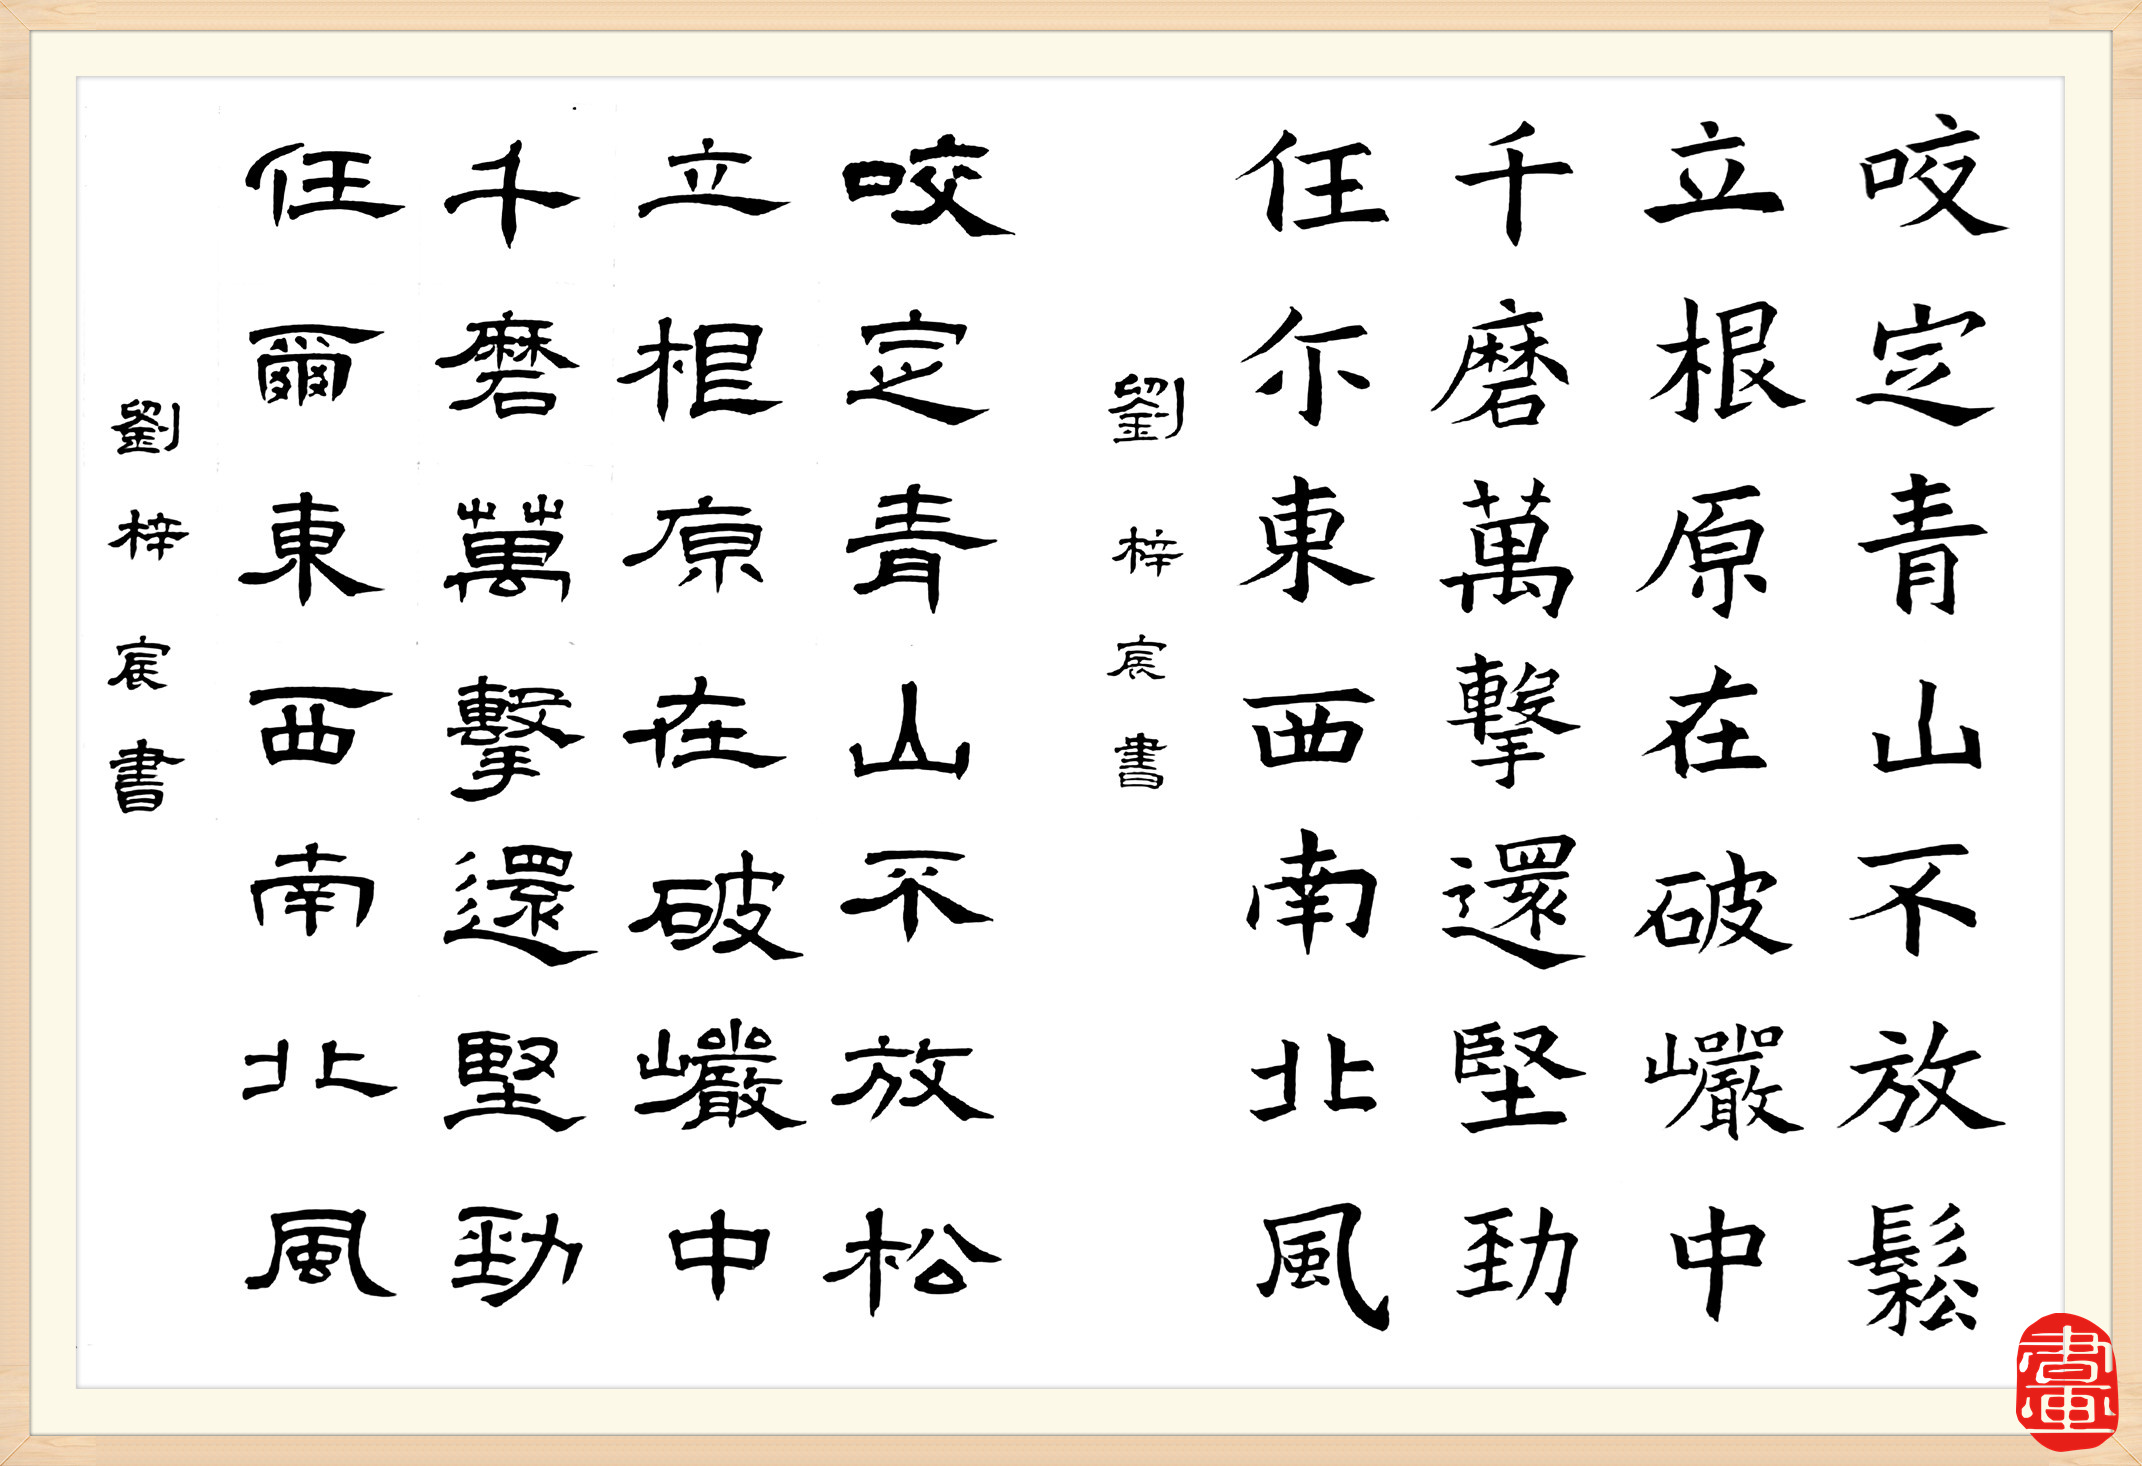 咬定青山不放鬆
立根原在破巖中
千磨萬擊還堅勁
任尔東西南北風
劉梓宸書
咬定青山不放松
立根原在破巖中
千磨萬擊還堅勁
任爾東西南北風
劉梓宸書
畫